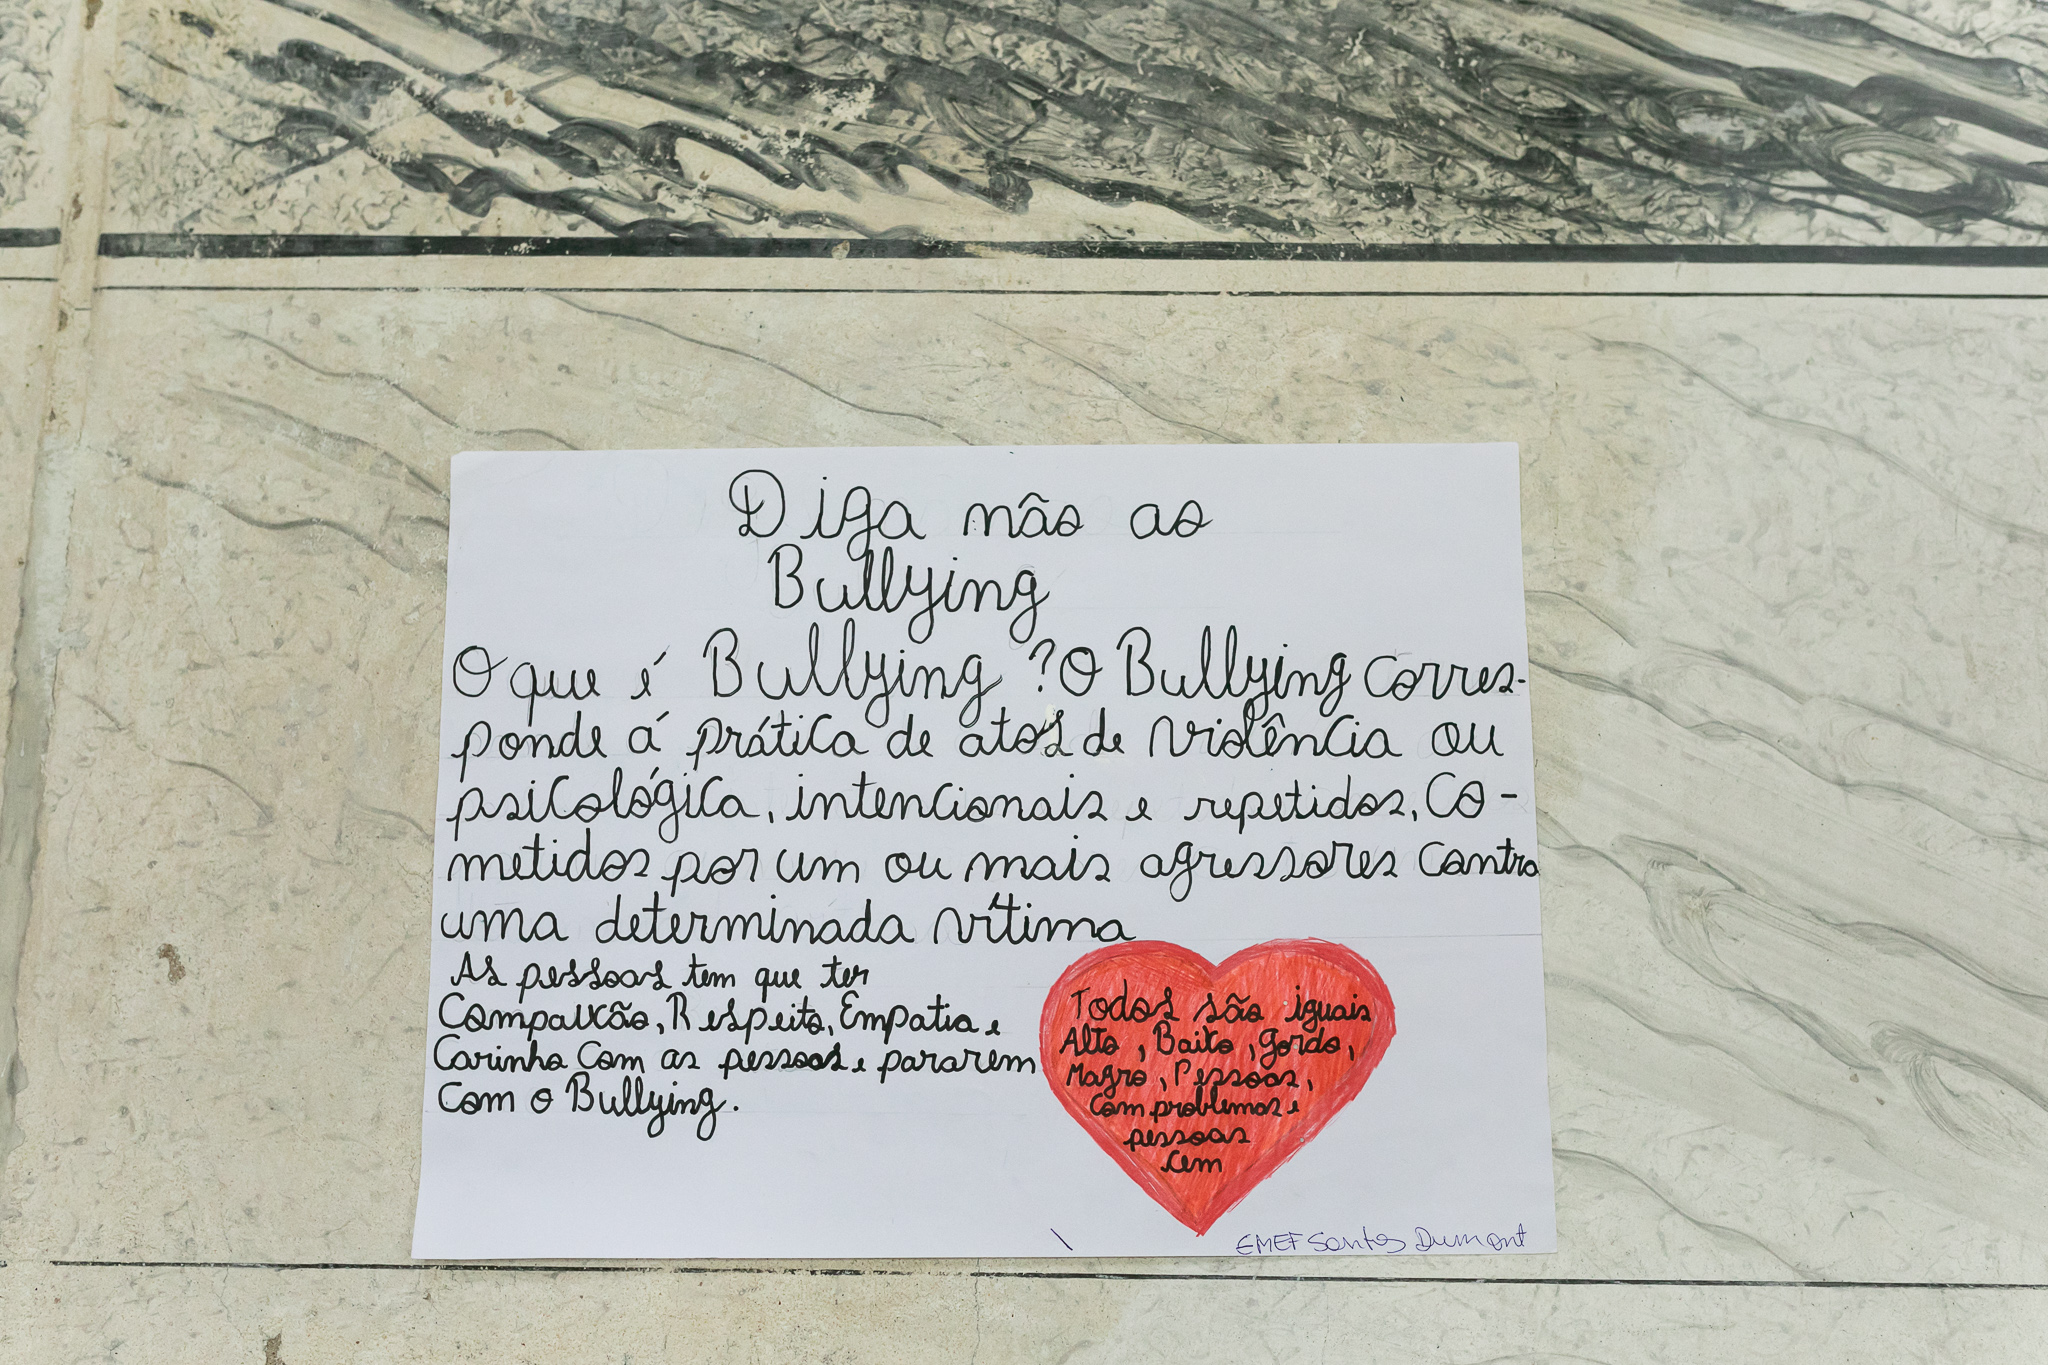 Diga não ao
Bullying
O que é Bullying ? O Bullying corres-
ponde á prática de atos de violência ou
psicológica, intencionais e repetidos, co-
metidos por um ou mais agressores contra
uma determinada vítima
As pessoas tem que ter
Compaixão, Respeito, Empatia e
Carinho Com as pessoas e pararem
Com o Bullying.
Todos são iguais
Alto, Baixo, Gordo,
Magro, Pessoas,
com problemas e
pessoas
cem
EMEF Santos Dumont